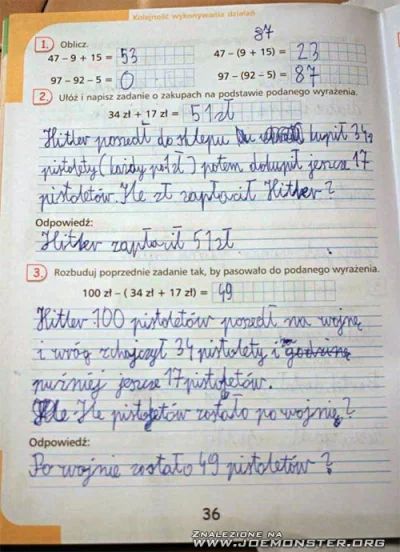 Kolejność wykonywania działań
87
1. Oblicz.
47 – 9 + 15 = 53 47 – (9 + 15) = 23
97 – 92 – 5 = 0 97 – (92 – 5) = 87
2. Ułóż i napisz zadanie o zakupach na podstawie podanego wyrażenia.
34 zł + 17 zł = 51 zł
Hitler poszedł do sklepu kupił 34
pistolety (każdy po 1 zł) potem dokupił jeszcze 17
pistoletów. Ile zł zapłacił Hitler?
Odpowiedź:
Hitler zapłacił 51 zł
3. Rozbuduj poprzednie zadanie tak, by pasowało do podanego wyrażenia.
100 zł – ( 34 zł + 17 zł) = 49
Hitler 100 pistoletów poszedł na wojnę
i wróg 34 pistolety i
puźniej jeszcze 17 pistoletów.
Ile pistoletów zostało po wojnie?
Odpowiedź:
Po wojnie zostało 49 pistoletów?
36
ZNALEZIONE NA
WWW.JOEMONSTER.ORG